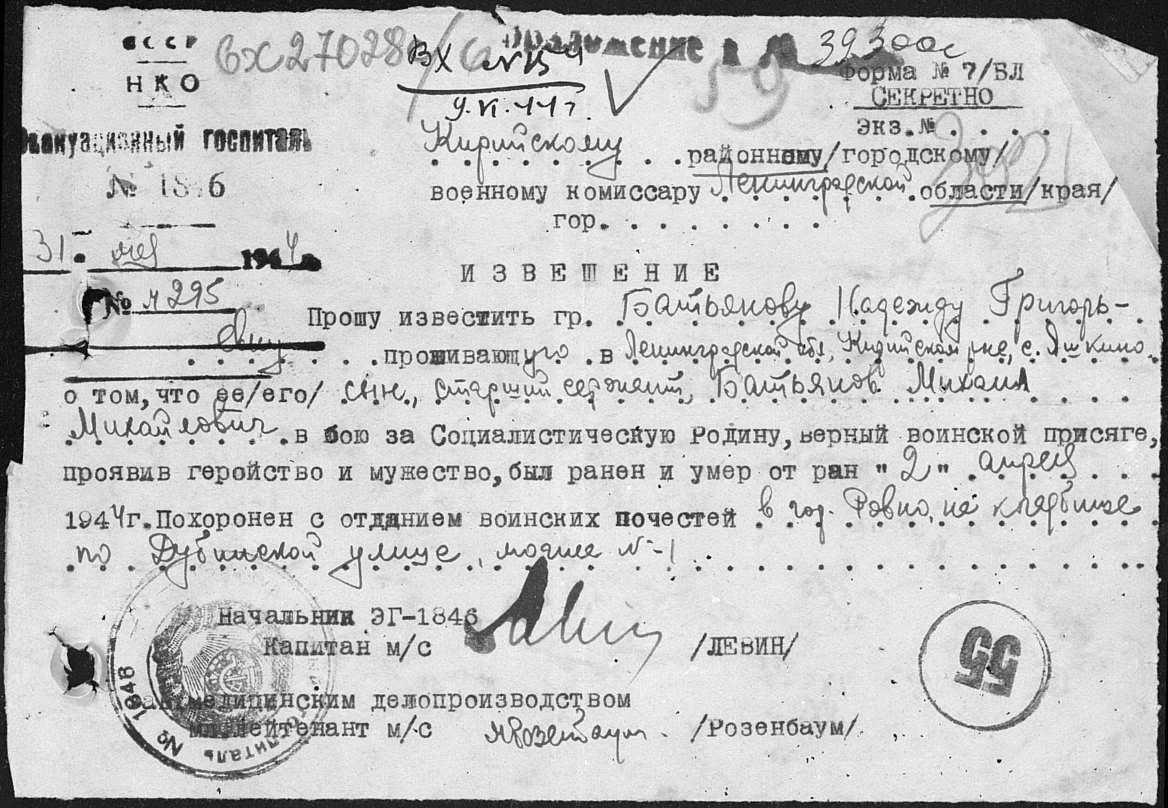 СССР
НКО
Эвакуационный госпиталь
№ 1846
31. мая 1944
№ 4295
вх 27028
Вх №
9.VI.44г
59
39300с
Форма № 7/БЛ
СЕКРЕТНО
экз.№ . . . .
Киришскому районному/городскому/
военному комиссару Ленинградской области/края/
гор. . . . . . . .
ИЗВЕШЕНИЕ
Прошу известить гр. Батьянову Надежду Григорь-
евну проживающую в Ленинградской обл, Киришском р-не, с.
о том, что ее/его/ сын, старший сержант, Батьянов Михаил
Михайлович в бою за Социалистическую Родину, верный воинской присяге,
проявив геройство и мужество, был ранен и умер от ран "2" апреля
1944г. Похоронен с отданием воинских почестей в гор. Ровно, на кладбище
по Дубинской улице, могила №1
Начальник ЭГ-1846
Капитан м/с /ЛЕВИН/
медицинским делопроизводством
мл.лейтенант м/с /Розенбаум/
№ 1846
55